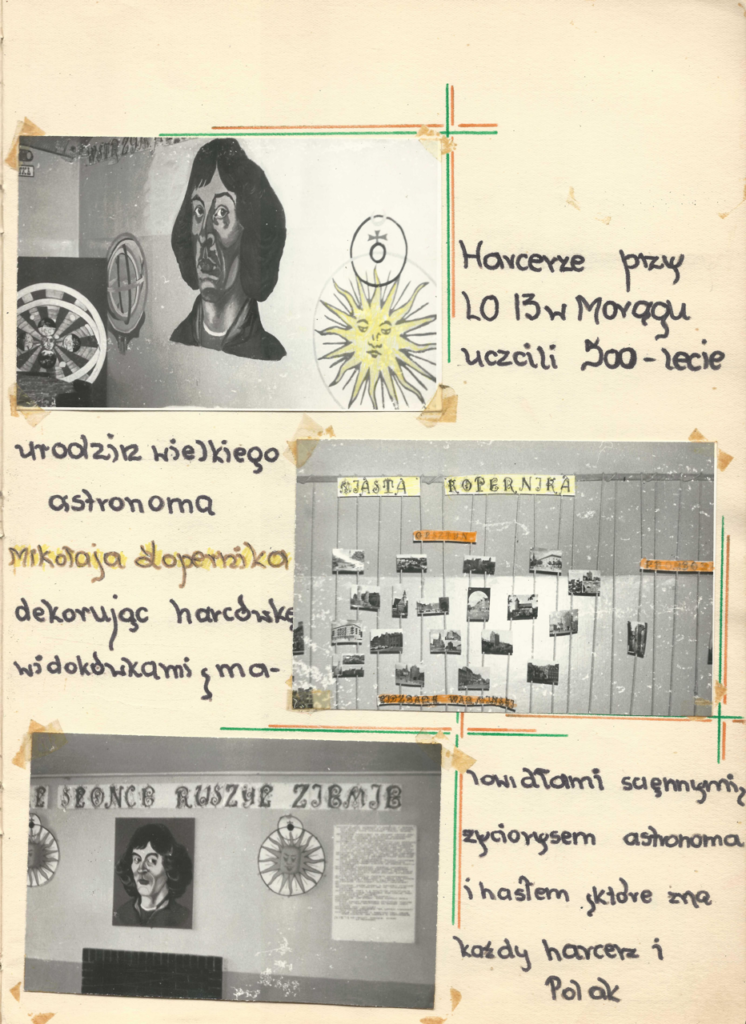 Harcerze przy
LO 13 w Morągu
uczcili 500-lecie
urodzin wielkiego
astronoma
Mikołaja Kopernika
dekorując harcówkę
widokówkami, ma-
MIASTA KOPERNIKA
OLSZTYN
LIDZBARK WARMIŃSKI
SŁOŃCE RUSZYŁ ZIEMIĘ
lowidłami sciennymi,
życiorysem astronoma
i hasłem, które zna
każdy harcerz i
Polak